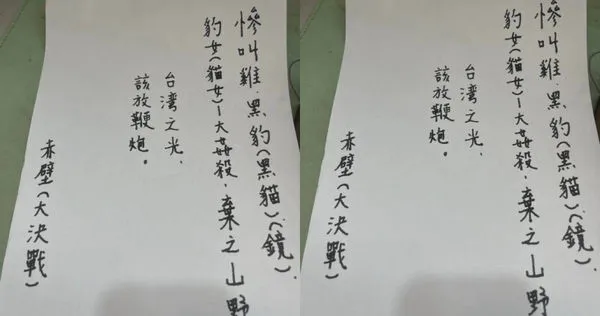 慘叫雞.黑豹(黑貓)(鏡).
豹女(貓女)-大姦殺,棄之山野
台湾之光,
該放鞭炮。
赤壁(大決戰)
慘叫雞.黑豹(黑貓)(鏡).
豹女(貓女)-大姦殺,棄之山野
台湾之光,
該放鞭炮。
赤壁(大決戰)